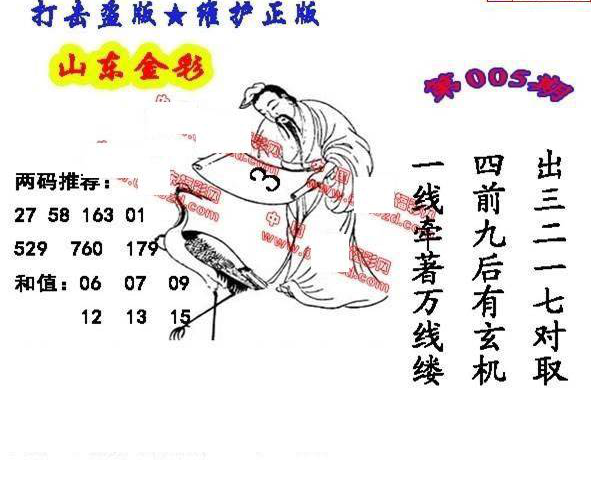 打击盗版★维护正版
山东金彩
第005期
两码推荐：
27 58 163 01
529 760 179
和值：06 07 09
12 13 15
3
出三二一七对取
四前九后有玄机
一线牵著万线缕